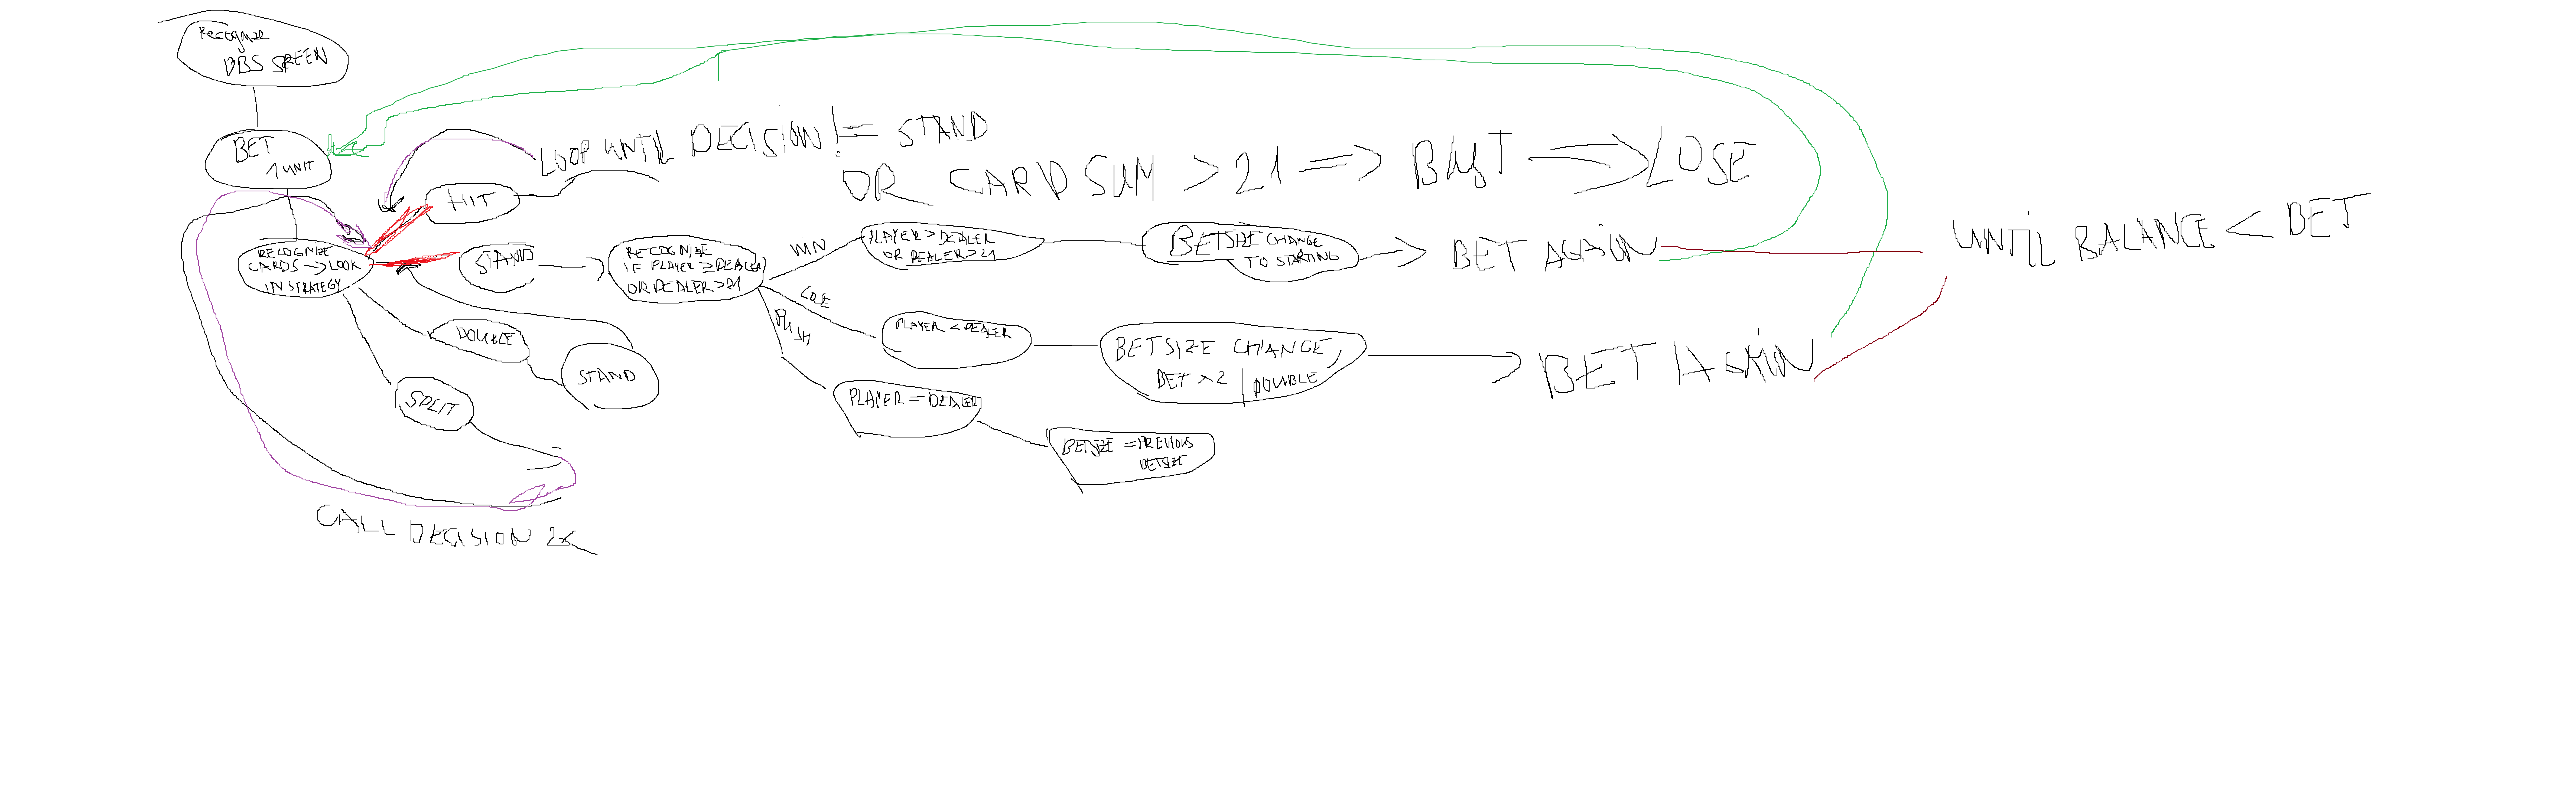 Recognize
OBS SREEN
BET
1 UNIT
LOOP UNTIL DECISION != STAND
OR CARD SUM > 21 => BUST => LOSE
HIT
RECOGNIZE
CARDS -> LOOK
IN STRATEGY
STAND
RECOGNIZE
IF PLAYER ≥ DEALER
OR DEALER > 21
WIN
PLAYER > DEALER
OR DEALER > 21
BETSIZE CHANGE
TO STARTING
BET AGAIN
UNTIL BALANCE < BET
LOSE
PLAYER < DEALER
BETSIZE CHANGE,
BET x2 | DOUBLE
BET AGAIN
PUSH
PLAYER = DEALER
BETSIZE = PREVIOUS
BETSIZE
DOUBLE
STAND
SPLIT
CALL DECISION 2x